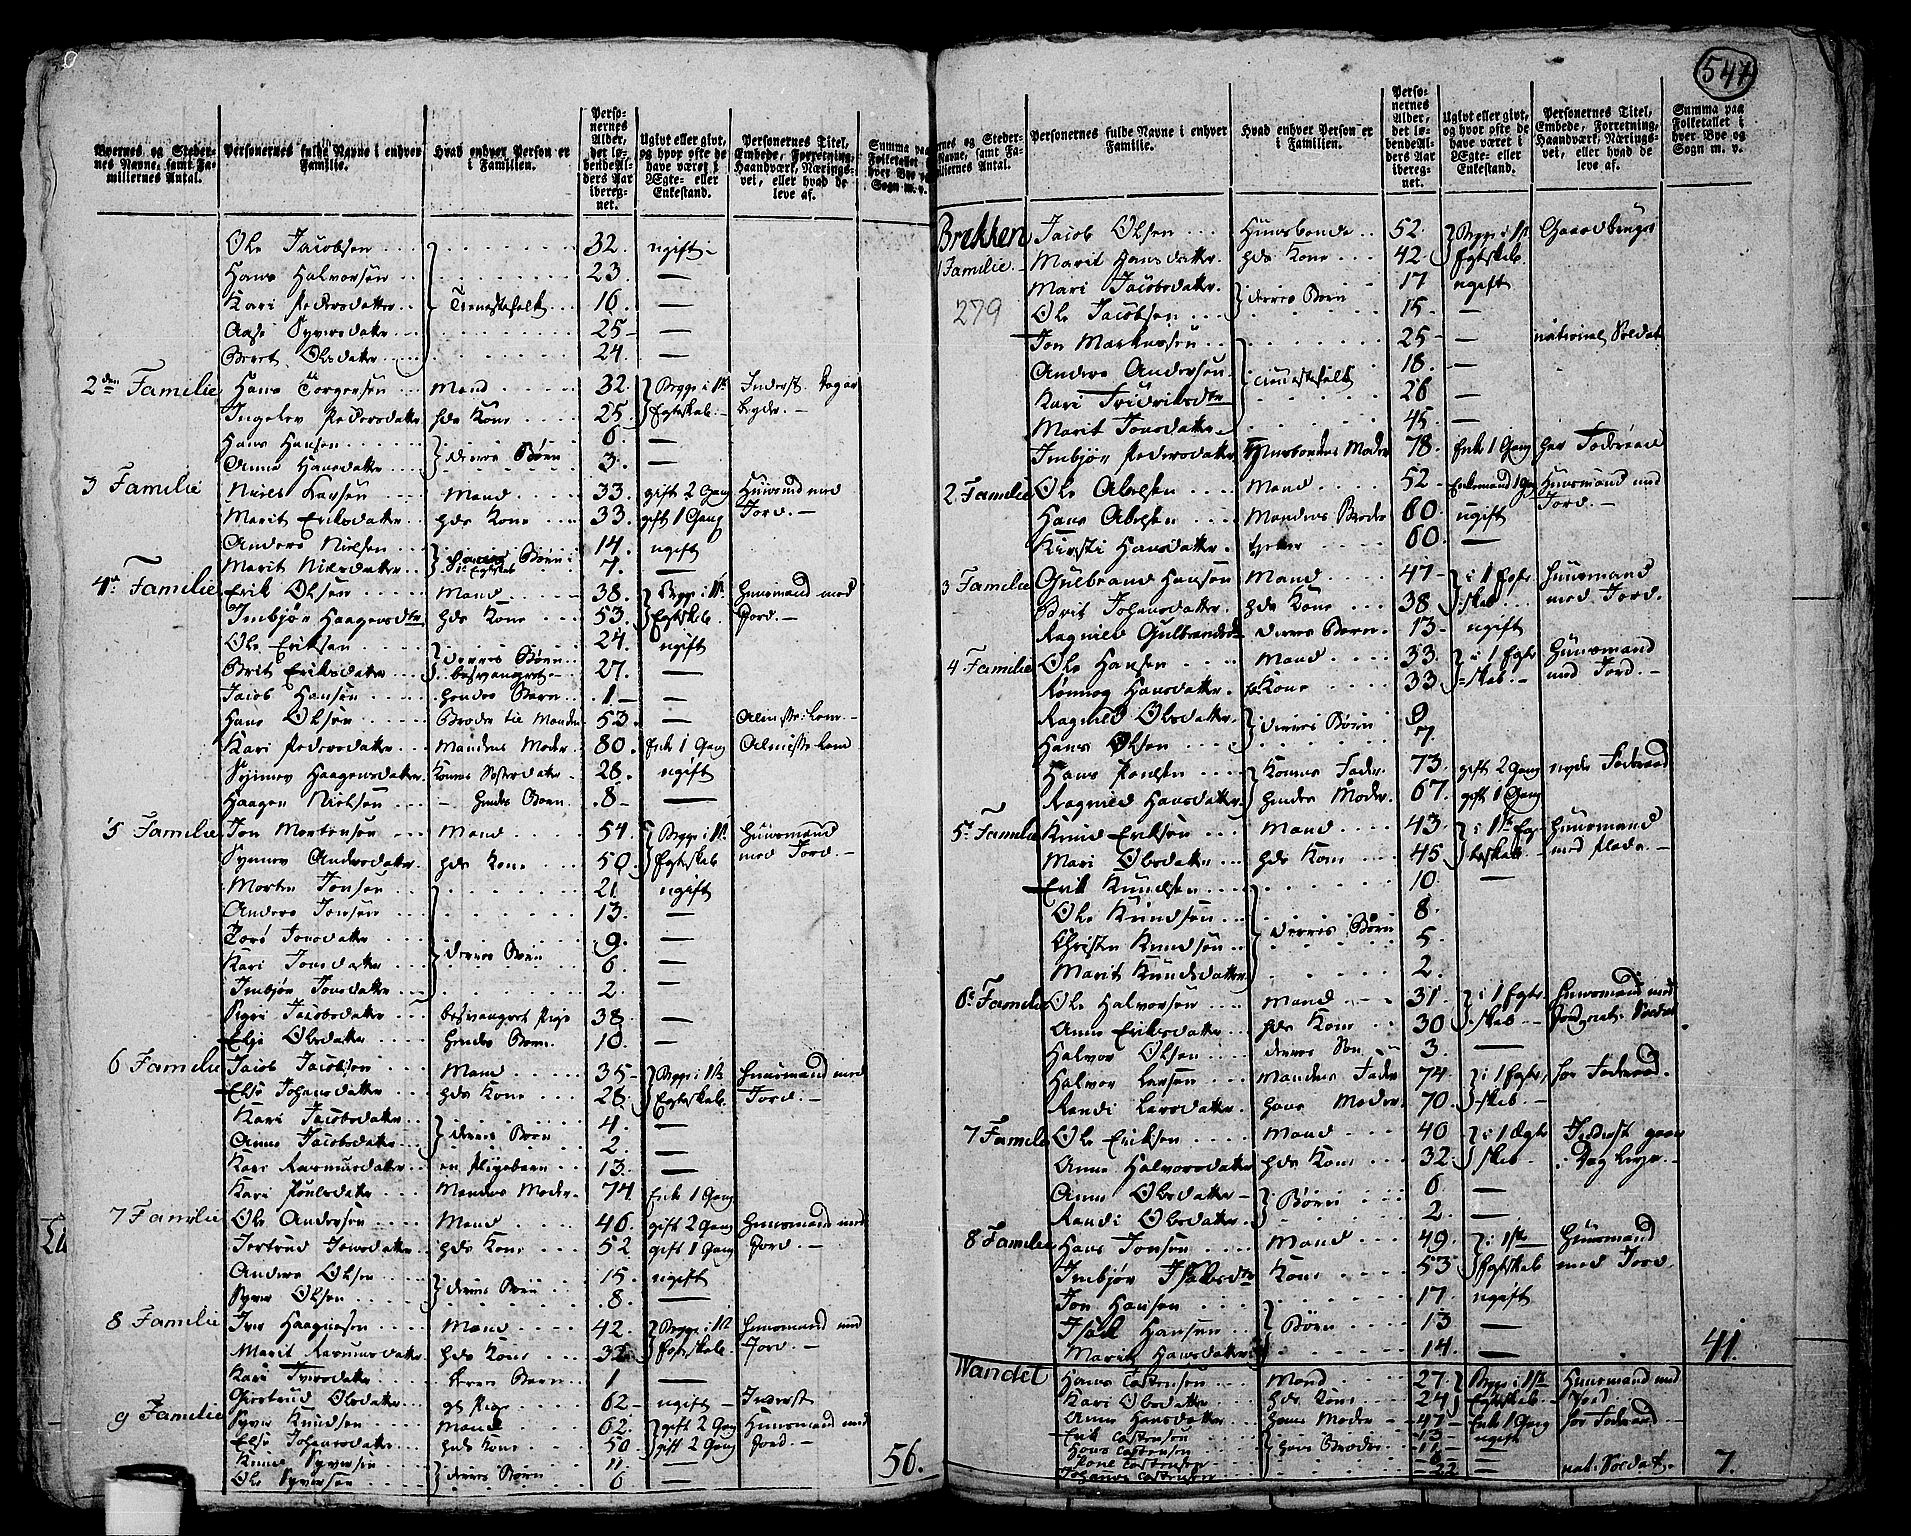 547
Boernes og Steder-
nes Navne, samt Fa-
miliernes Antal.
Personernes fulde Navne i enhver
Familie.
Hvad enhver Person er
i Familien.
Perso-
nernes
Alder,
det lø-
bende Al-
ders Aar
ibereg-
net.
Ugivt eller givt,
og hvor ofte de
have været i
Ægte- eller
Enkestand.
Personernes Titel,
Embede, Forretning,
Haandværk, Nærings-
vei, eller hvad de
leve af.
Summa paa
Folketallet i
hver Bye og
Sogn m. v.
Ole Jacobsen 32 ugift
Hans Halvorsen 23 —
Kari Pedersdatter Tienestefolk 16 —
Aase Syversdatter 25 —
Berit Olsdatter 24 —
2den Familie Hans Torgersen Mand 32 Begge i 1ste Inderst
Ingebor Pedersdatter hds Kone 25 Egteskab
Hans Hansen 6 —
Anne Hansdatter deres Børn 3 —
3 Familie Niels Mand 33 gift 2 Gang Huusmand med
Marit Eriksdatter hds Kone 33 gift 1 Gang Jord
Anders Nielsen 14 ugift
Marit Nielsdatter Børn 7 —
4de Familie Erik Olsen Mand 38 Begge i 1ste Huusmand med
Imbjør Haagensdtr hds Kone 53 Egteskab Jord
Ole Eriksen 24 ugift
Brit Eriksdatter deres Børn besvangret 27 —
Jacob Hansen hendes Barn 1 —
Hans Olsen Broder til Manden 53 — Almisse Lem
Kari Pedersdatter Mandens Moder 80 Enk 1 Gang Almisse Lem
Synnev Haagensdatter Konens Søsterdatter 28 ugift
Haagen Nielsen hendes Barn 8 —
5 Familie Jon Mortensen Mand 54 Begge i 1ste Huusmand
Synnev Andersdatter hds Kone 50 Egteskab med Jord
Morten Jonsen 21 ugift
Anders Jonsen 13 —
Jonsdatter 9 —
Kari Jonsdatter deres Børn 6 —
Imbjør Jonsdatter 2 —
Sigri Jacobsdatter besvangret Pige 38 —
Elje Olsdatter hendes Barn 10 —
6 Familie Jacob Jacobsen Mand 35 Begge i 1ste Huusmand med
Else Johansdatter hds Kone 28 Egteskab Jord
Kari Jacobsdatter 4 —
Anne Jacobsdatter deres Børn 2 —
Kari Rasmusdatter en Pigebarn 13 —
Kari Poulsdatter Mandens Moder 74 Enk 1 Gang
7 Familie Ole Andersen Mand 46 gift 2 Gang Huusmand med
Jertrud Jonsdatter hds Kone 52 gift 1 Gang Jord
Anders Olsen 15 ugift
Syver Olsen deres Børn 8 —
8 Familie Iver Haagensen Mand 42 Begge i 1ste Huusmand med
Marit Rasmusdatter hds Kone 32 Egteskab Jord
Kari Iversdatter deres Barn 1 —
Giertrud Olsdatter Pige 62 ugift Inderst
9 Familie Syver Knudsen Mand 62 gift 2 Gang Huusmand med
Else Johansdatter hds Kone 50 gift 2 Gang Jord
Knud Syversen 11 —
Ole Syversen deres Børn 6 —
56.
nes og Steder-
Navne, samt Fa-
iliernes Antal.
Personernes fulde Navne i enhver
Familie.
Hvad enhver Person er
i Familien.
Perso-
nernes
Alder,
det lø-
bende Al-
ders Aar
ibereg-
net.
Ugivt eller givt,
og hvor ofte de
have været i
Ægte- eller
Enkestand.
Personernes Titel,
Embede, Forretning,
Haandværk, Nærings-
vei, eller hvad de
leve af.
Summa paa
Folketallet i
hver Bye og
Sogn m. v.
Brekken Jacob Olsen Huusbonde 52 Begge i 1ste Gaardbruger
1 Familie Marit Hansdatter hds Kone 42 Egteskab
Mari Jacobsdatter 17 ugift
279 Ole Jacobsen deres Børn 15 —
Jon Markussen 25 — national Soldat
Anders Andersen 18 —
Kari Fridriksdtr tienestefolk 26 —
Marit Jonsdatter 45 —
Imbjør Pedersdatter Huusbondens Moder 78 Enk 1 Gang har Føderaad
2 Familie Ole Mand 52 Enkemand 1 Gang Huusmand med
Hans Mandens Broder 60 ugift Jord
Kirsti Hansdatter 60 —
3 Familie Gulbrand Hansen Mand 47 i 1 Egte Huusmand
Brit Johansdatter hds Kone 38 skab med Jord
Ragnild Gulbrandsdtr deres Barn 13 ugift
4 Familie Ole Hansen Mand 33 i 1 Egte Huusmand
Rønnog Hansdatter Kone 33 skab med Jord
Ragnild Olsdatter 9
Hans Olsen deres Børn 7
Hans Konens Fader 73 gift 2 Gang nyder Føderaad
Ragnild Hansdatter hendes Moder 67 gift 1 Gang
5 Familie Knud Eriksen Mand 43 i 1ste Eg- Huusmand
Mari Olsdatter hds Kone 45 teskab med Plads
Erik Knudsen 10 —
Ole Knudsen 8
Christen Knudsen deres Børn 5
Marit Knudsdatter 2
6te Familie Ole Halvorsen Mand 31 i 1 Egte Huusmand med
Anne Eriksdatter hds Kone 30 skab Jord, nat. Soldat
Halvor Olsen deres Søn 3 —
Halvor Larsen Mandens Fader 74 i 1 Egte har Føderaad
Randi Larsdatter hans Moder 70 skab
7 Familie Ole Eriksen Mand 40 i 1 Ægte Inderst gaar
Anne Halvorsdatter hds Kone 32 skab i Dag Leje
Anne Olsdatter 6 —
Randi Olsdatter Børn 2 —
8 Familie Hans Jonsen Mand 49 i 1ste Huusmand
Imbjør Isaksdtr Kone 53 Egteskab med Jord
Jon Hansen 17 ugift
Isak Hansen Børn 13 —
Marit Hansdatter 14 — 41.
Wandet Hans Torstensen Mand 27 Begge i 1ste Huusmand med
Kari Olsdatter hds Kone 24 Egteskab Jord
Anne Hansdatter hans Moder 47 Enk 1 Gang har Føderaad
Erik Torstensen 13 ugift
Hans Torstensen hans Brødre 11 —
Torstensen 6 —
Johannes Torstensen 22 — nat. Soldat 7.